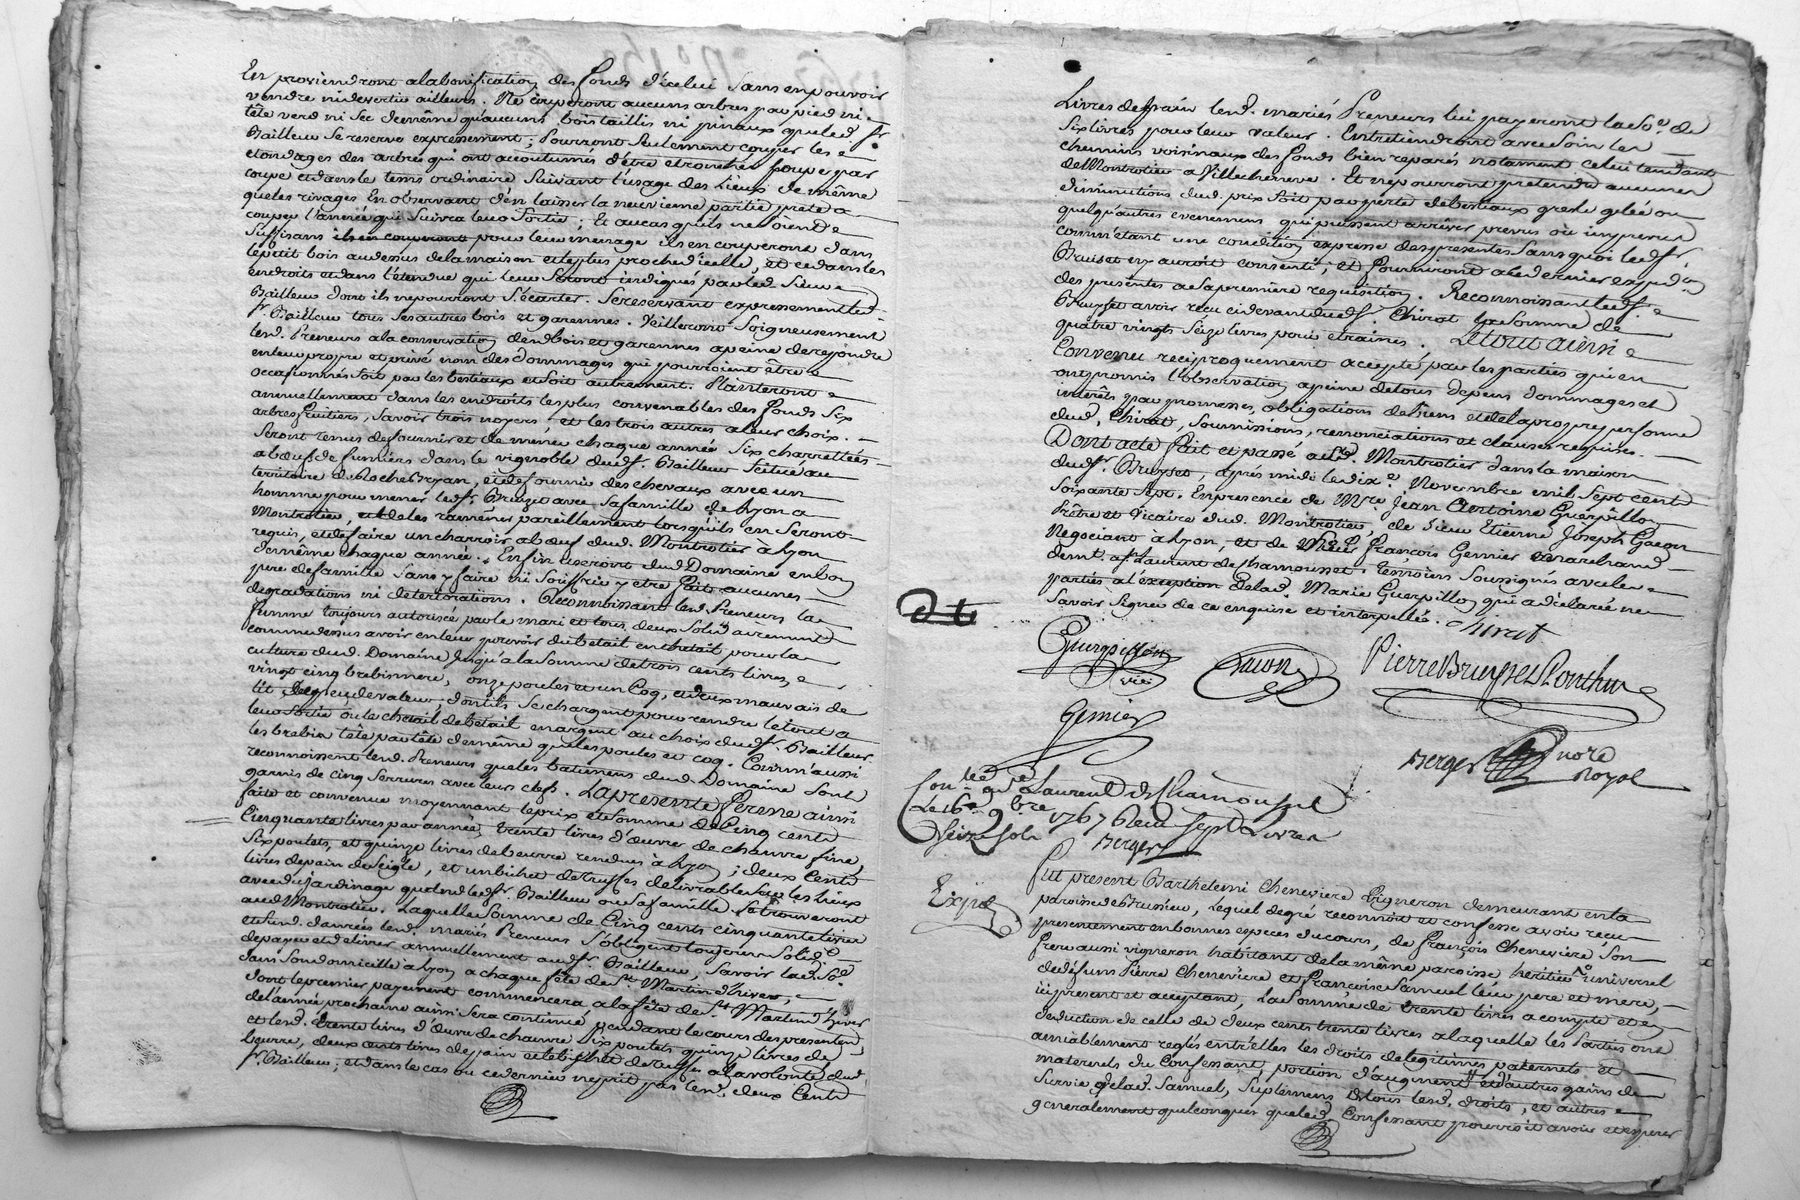 En proviendront a la bonification des fonds d'icelui sans en pouvoir
vendre ni devertir ailleurs. Ne couperont aucuns arbres par pied ni
tête verd ni sec de même qu'aucuns bois taillis ni pinaux que led. sr.
Bailleur se reserve expressement; Pourront seulement couper les
elondages des arbres qui ont accoutumés d'être etronchés coupe par
coupe et dans le tems ordinaire suivant l'usage des Lieux de même
que les rivages En observant d'en laisser la neuvieme partie prete a
couper l'année qui suivra leur Sortie; Et au cas qu'ils ne soient
suffisans pour leur menage ils en couperont dans
le petit bois au dessus de la maison et le plus proche d'icelle, et ce dans les
endroits et dans l'etendue qui leur seront indiqués par led. Sieur
Bailleur dont ils ne pourront s'écarter. Se reservant expressement led.
sr. Bailleur tous ses autres bois et garennes. Veilleront soigneusement
lesd. Preneurs a la conservation desd. bois et garennes a peine de repondre
en leur propre et privé nom des dommages qui pourroient être
occasionnés soit par les bestiaux et soit autrement. Planteront
annuellement dans les endroits les plus convenables des fonds six
arbres fruitiers, savoir trois noyers et les trois autres a leur choix.
Seront tenus de fournir et de mener chaque année six charrettées
a bœufs de fumiers dans le vignoble dud. sr. Bailleur situé au
territoire de et de fournir des chevaux avec un
homme pour mener led. sr. Bruyset avec sa famille de Lyon a
Montrotier, et de les ramener pareillement lorsqu'ils en seront
requis, et de faire un charroir a bœuf dud. Montrotier à Lyon
de même chaque année. Enfin useront dud. Domaine en bon
pere de famille sans y faire ni souffrir y etre fait aucunes
degradations ni deteriorations. Reconnoissant lesd. Preneurs la
femme toujours autorisée par le mari et tous deux solidairement
comme dessus avoir en leur pouvoir du betail en chetail pour la
culture dud. Domaine jusqu'à la somme de trois cents livres,
vingt cinq brebis mere, onze poules et un Coq, et deux mauvais
lit de peu de valeur, dont ils se chargent pour rendre le tout a
leur sortie ou le chetail de betail en argent au choix dud. sr. Bailleur
les brebis tête par tête de même que les poules et coq. Comm'aussi
reconnoissent lesd. Preneurs que les batimens dud. Domaine sont
garnis de cinq serrures avec leurs clefs. La presente Ferme ainsi
faite et convenue moyennant le prix et somme de Cinq cent
Cinquante livres par année, trente livres d'œuvre de chanvre fine,
six poulets, et quinze livres de beurre rendues à Lyon; deux Cents
livres de pain de seigle, et un bichet de truffes delivrables sur les Lieux
avec du jardinage quand led. sr. Bailleur ou sa famille se trouveront
aud. Montrotier. Laquelle somme de Cinq cents cinquante livres
et susd. danrées lesd. mariés Preneurs s'obligent toujours solid.t
de payer et delivrer annuellement aud. sr. Bailleur, savoir lad. so.e
dans son domicille a Lyon a chaque fête de St. Martin d'hiver,
dont le premier payement commencera a la fête de St. Martin d'hyver
de l'année prochaine ainsi sera continué pendant le cours des presentes,
et lesd. trente livres d'œuvre de chanvre six poulets quinze livres de
beurre, deux cents livres de pain et le bichet de truffes a la volonté dud.
sr. Bailleur; et dans le cas ou ce dernier ne prit pas lesd. deux Cents
Livres de pain lesd. mariés Preneurs lui payeront la So.e de
Six livres pour leur valeur. Entretiendront avec soin les
chemins voisinaux des fonds bien reparés notament celui tendant
de Montrotier a Villecheneve. Et ne pourront pretendre aucunes
diminutions dud. prix soit par perte de bestiaux gresle gelée ou
quelqu'autres evenemens qui puissent arriver prevus ou imprevus
comm'étant une condition expresse des presentes sans quoi led. sr.
Bruiset n'y auroit consenti; et fourniront a ce dernier exped.on
des presentes a sa premiere requisition. Reconnoissant led. sr.
Bruyset avoir reçu cidevant dud. sr. Chirat la somme de
quatre vingt seize livres pour etraines. Le tout ainsi
Convenu reciproquement accepté par les parties qui en
ont promis l'observation a peine de tous depens dommages et
interêts par promesses, obligations de biens et de la propre personne
dud. Chirat, soumissions, renonciations et clauses requises.
Dont acte Fait et passé aud. Montrotier dans la maison
dud. sr. Bruyset, après midi le dix e Novembre mil sept cent
soixante sept. En presence de Mre. Jean Antoine Guerpillon
Prêtre et Vicaire dud. Montrotier, de sieur Etienne Joseph Gacon
Negociant à Lyon, et de François Gemier marchand
dem.t a St. Laurent de Chamousset. Temoins soussignés avec les
parties a l'exception de lad. Marie Guerpillon qui a declaré ne
savoir signer de ce enquise et interpellée. Chirat
Guerpillon
vic
Gacon
Pierre Bruyset Ponthus
Gemier
Berger nore
Royal
Con.lé a St Laurent de Chamousset
Le 16e 9bre 1767 Reçu sept Livres
Seize sols Berger
Fut present Barthelemi Cheneviere Vigneron demeurant en la
paroisse de Brussieu, Lequel de gré reconnoit et confesse avoir reçu
presentement en bonnes especes du cours, de François Cheneviere son
frere aussi vigneron habitant de la même paroisse heritier universel
de défunts Pierre Cheneviere et Françoise Samuel leur pere et mere,
ici present et acceptant, La somme de trente livres a compte et en
deduction de celle de deux cents trente livres a laquelle les parties ont
amiablement reglés entr'elles les droits de legitimes paternels et
maternels du Confessant, portion d'augment et d'autres gains de
survie de lad. Samuel, suplemens de tous lesd. droits, et autres
generalement quelconques que led. Confessant pourroit avoir et esperer